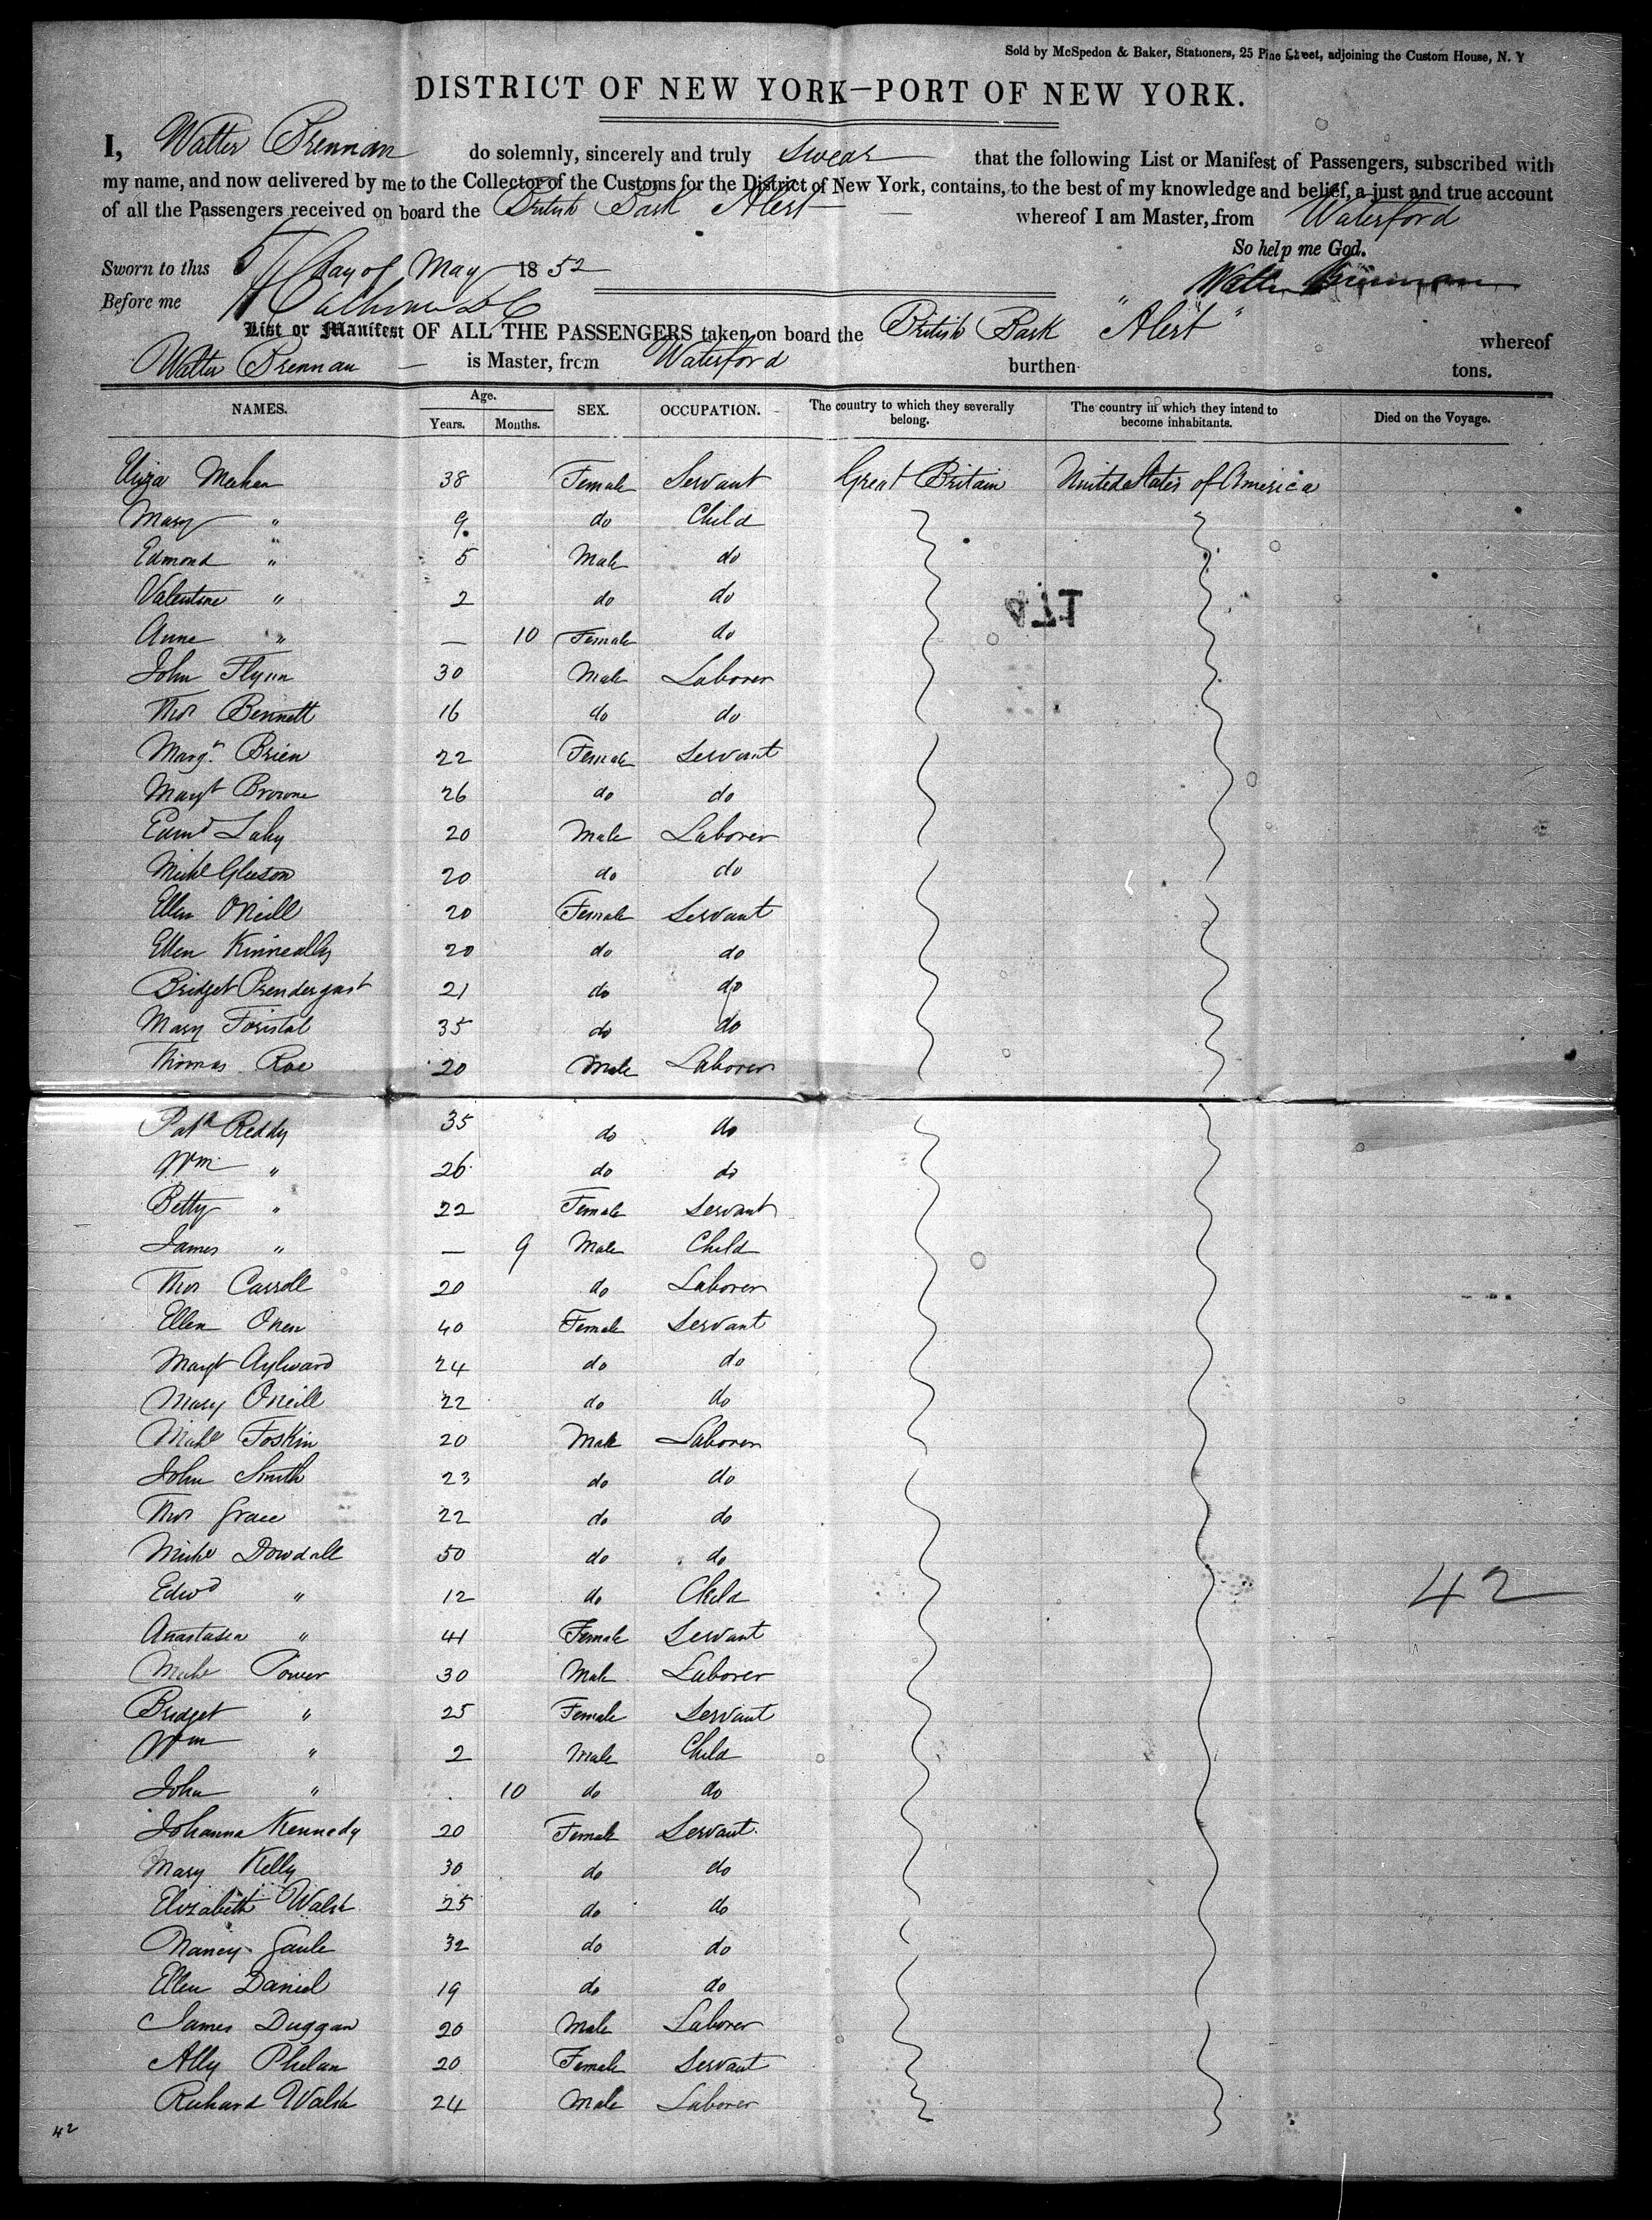 Sold by McSpedon & Baker, Stationers, 25 Pine Street, adjoining the Custom House, N. Y
DISTRICT OF NEW YORK—PORT OF NEW YORK.
I, Walter Brennan do solemnly, sincerely and truly swear that the following List or Manifest of Passengers, subscribed with
my name, and now delivered by me to the Collector of the Customs for the District of New York, contains, to the best of my knowledge and belief, a just and true account
of all the Passengers received on board the British Bark Alert whereof I am Master, from Waterford
So help me God.
Sworn to this 5 day of May 1852
Walter Brennan
Before me
List or Manifest OF ALL THE PASSENGERS taken on board the British Bark "Alert" whereof
Walter Brennan is Master, from Waterford burthen tons.
NAMES. Age. Years. Months. SEX. OCCUPATION. The country to which they severally belong. The country in which they intend to become inhabitants. Died on the Voyage.
Eliza Meehan 38 Female Servant Great Britain United States of America
Mary " 9 do Child
Edmond " 5 Male do
Valentine " 2 do do
Anne " — 10 Female do
John Flynn 30 Male Laborer
Thos Bennett 16 do do
Margt Brien 22 Female Servant
Margt Browne 26 do do
Edmd Lahy 20 Male Laborer
Michl Gleeson 20 do do
Ellen ONeill 20 Female Servant
Ellen Kinneally 20 do do
Bridget Prendergast 21 do do
Mary Foristal 35 do do
Thomas Roe 20 Male Laborer
Patk Reddy 35 do do
Wm " 26 do do
Betty " 22 Female Servant
James " — 9 Male Child
Thos Carroll 20 do Laborer
Ellen 40 Female Servant
Margt Aylward 24 do do
Mary ONeill 22 do do
Michl Foskin 20 Male Laborer
John Smith 23 do do
Thos Grace 22 do do
Michl Dowdall 50 do do
Edwd " 12 do Child
42
Anastasia " 41 Female Servant
Michl Power 30 Male Laborer
Bridget " 25 Female Servant
Wm " 2 Male Child
John " 10 do do
Johanna Kennedy 20 Female Servant
Mary Kelly 30 do do
Elizabeth Walsh 25 do do
Nancy Gaule 32 do do
Ellen Daniel 19 do do
James Duggan 20 Male Laborer
Ally Phelan 20 Female Servant
Richard Walsh 24 Male Laborer
42